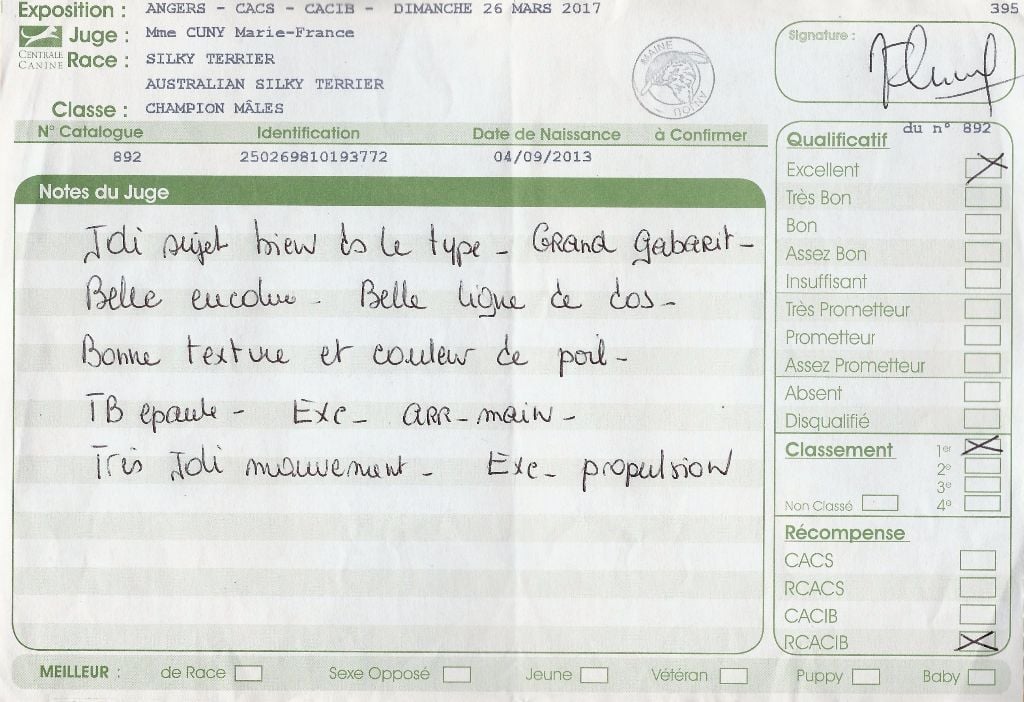 Exposition : ANGERS - CACS - CACIB - DIMANCHE 26 MARS 2017
395
CENTRALE CANINE
Juge : Mme CUNY Marie-France
Race : SILKY TERRIER
AUSTRALIAN SILKY TERRIER
Classe : CHAMPION MÂLES
MAINE ANJOU
Signature :
N° Catalogue Identification Date de Naissance à Confirmer
892 250269810193772 04/09/2013
Notes du Juge
Joli sujet bien ds le type - Grand Gabarit -
Belle encolure - Belle ligne de dos -
Bonne texture et couleur de poil -
TB epaule - Exc - ARR - main -
Très Joli mouvement - Exc - propulsion
du n° 892
Qualificatif
Excellent
Très Bon
Bon
Assez Bon
Insuffisant
Très Prometteur
Prometteur
Assez Prometteur
Absent
Disqualifié
Classement 1er
2e
3e
Non Classé 4e
Récompense
CACS
RCACS
CACIB
RCACIB
MEILLEUR : de Race Sexe Opposé Jeune Vétéran Puppy Baby